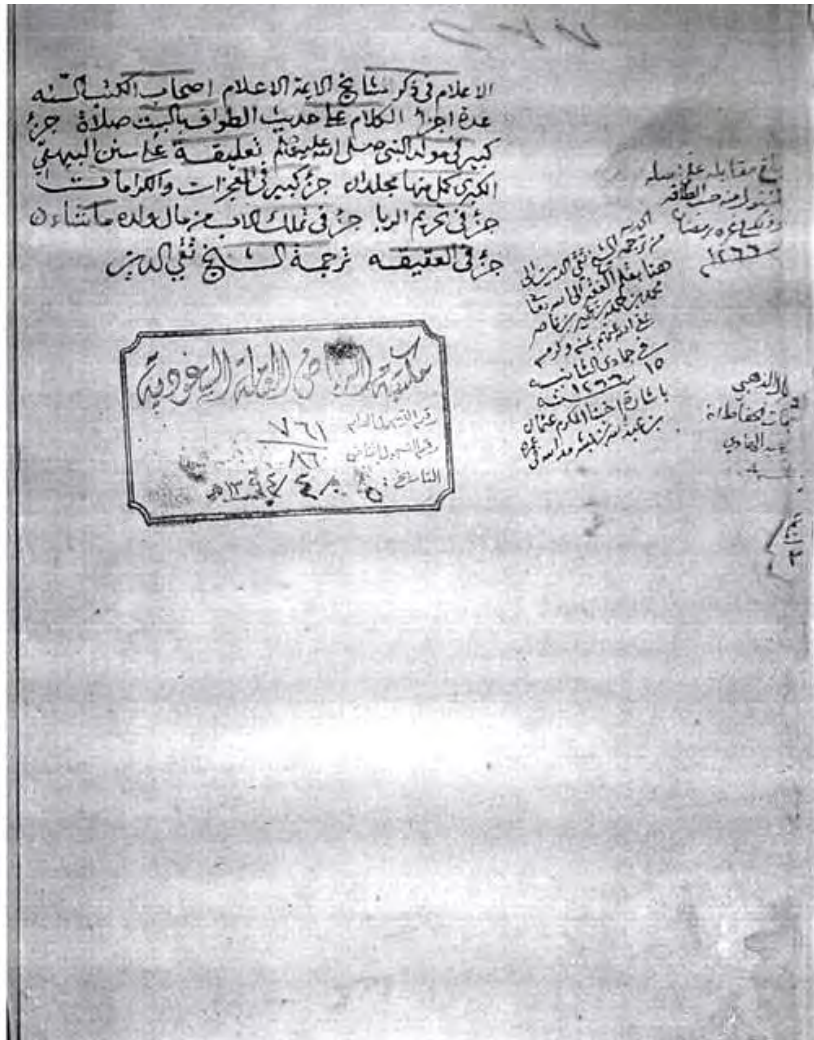 الاعلام فى ذكر مشايخ الايمة الاعلام اصحاب الكتب السته
عدة اجزا الكلام على حديث الطواف بالبيت صلاة جزء
كبير فى مولد النبى صلى الله عليه وسلم تعليقة على سنن البيهقي
الكبرى كمل منها مجلدان جزء كبير فى المعجزات والكرامات
جزء فى تحريم الربا جزء فى تملك الاب من مال ولده ما شاء
جزء فى العقيقه ترجمة الشيخ تقي الدين
بلغ مقابله على اصله
المنقول منه حسب الطاقه
رمضان
١٢٦٦
من ترجمة الشيخ تقي الدين الى
هنا بقلم الفقير الى الله تعالى
محمد بن
فى جمادى الثانيه
١٥ سنة ١٢٦٦
باشارة اخينا المكرم عثمان
بن عبد الله بن بشر
الذهبي
عبد الهادي
مكتبة الرياض العامة السعودية
رقم التسجيل العام ٧٦١
رقم التسجيل الخاص ٨٦
التاريخ: ١٣٩٤ هـ